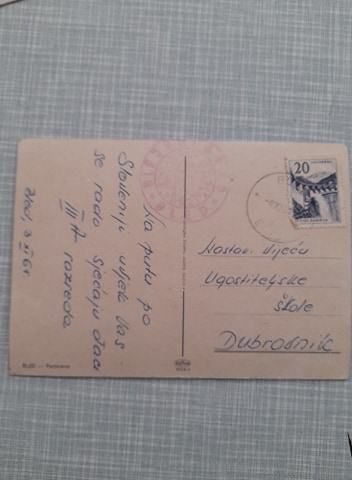 Na putu po
Sloveniji uvijek Vas
se rado sjećaju đaci
III A razreda
Bled, 3 XI 61.
BLED — Panorama
20
Nastav. Vijeću
Ugostiteljske
škole
Dubrovnik